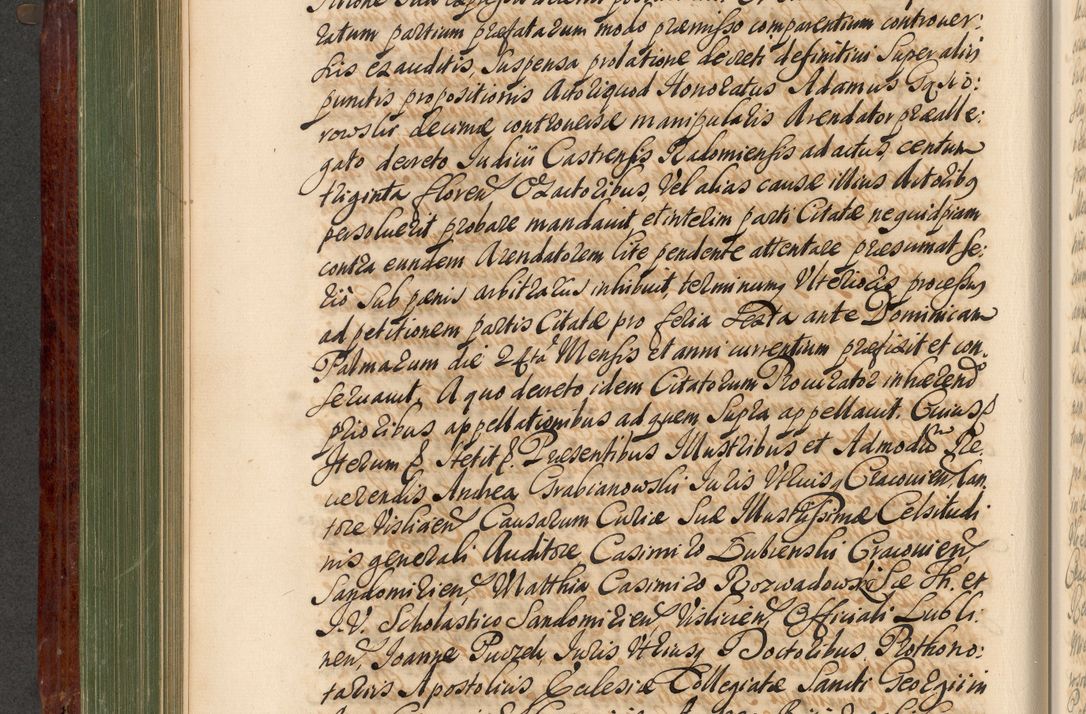 ratum partium præfatarum modo præmisso comparentium controver:
siis exauditis, Suspensa prolatione decreti definitivi Super aliis
punctis propositionis Actoriquod Honoratus Adamus
rowski decimæ controversæ manipularis Arendator præalle:
gato decreto Judicii Castrensis Radomiensis ad actus centum
triginta floren Exactoribus, Vel alias causæ illius Actoribq
persoluerit probare mandavit et interim parti Citatæ nequidpiam
contra eundem Arendatorem lite pendente attentare præsumat se:
rio sub pænis arbitrariis inhibuit, terminumq Ulterioris processus
ad petitionem partis Citatæ pro feria Sexta ante Dominicam
Palmarum die 24ta Mensis et anni currentium præfixit et con:
servavit, A quo decreto idem Citatorum Procurator inhærend
prioribus appellationibus ad quem Supra appellavit. Cuius
Iterum & Stetit &. Præsentibus Illustribus et Admodum Re:
verendis Andrea Grabianowski Juris Utriusq Cracovien Can
tore Vislicien Causarum Curiæ Suæ Illustrissimæ Celsitudi
nis generali Auditore Casimiro Łubienski Cracovien
Sandomirien, Matthia Casimiro Rozwadowski Sæ Th. et
J. V. Scholastico Sandomirien Vislicien, Officiali Lubli:
nen, Joanne Juris Utriusq Doctoribus Prothono:
tariis Apostolicis Ecclesiæ Collegiatæ Sancti Georgii in